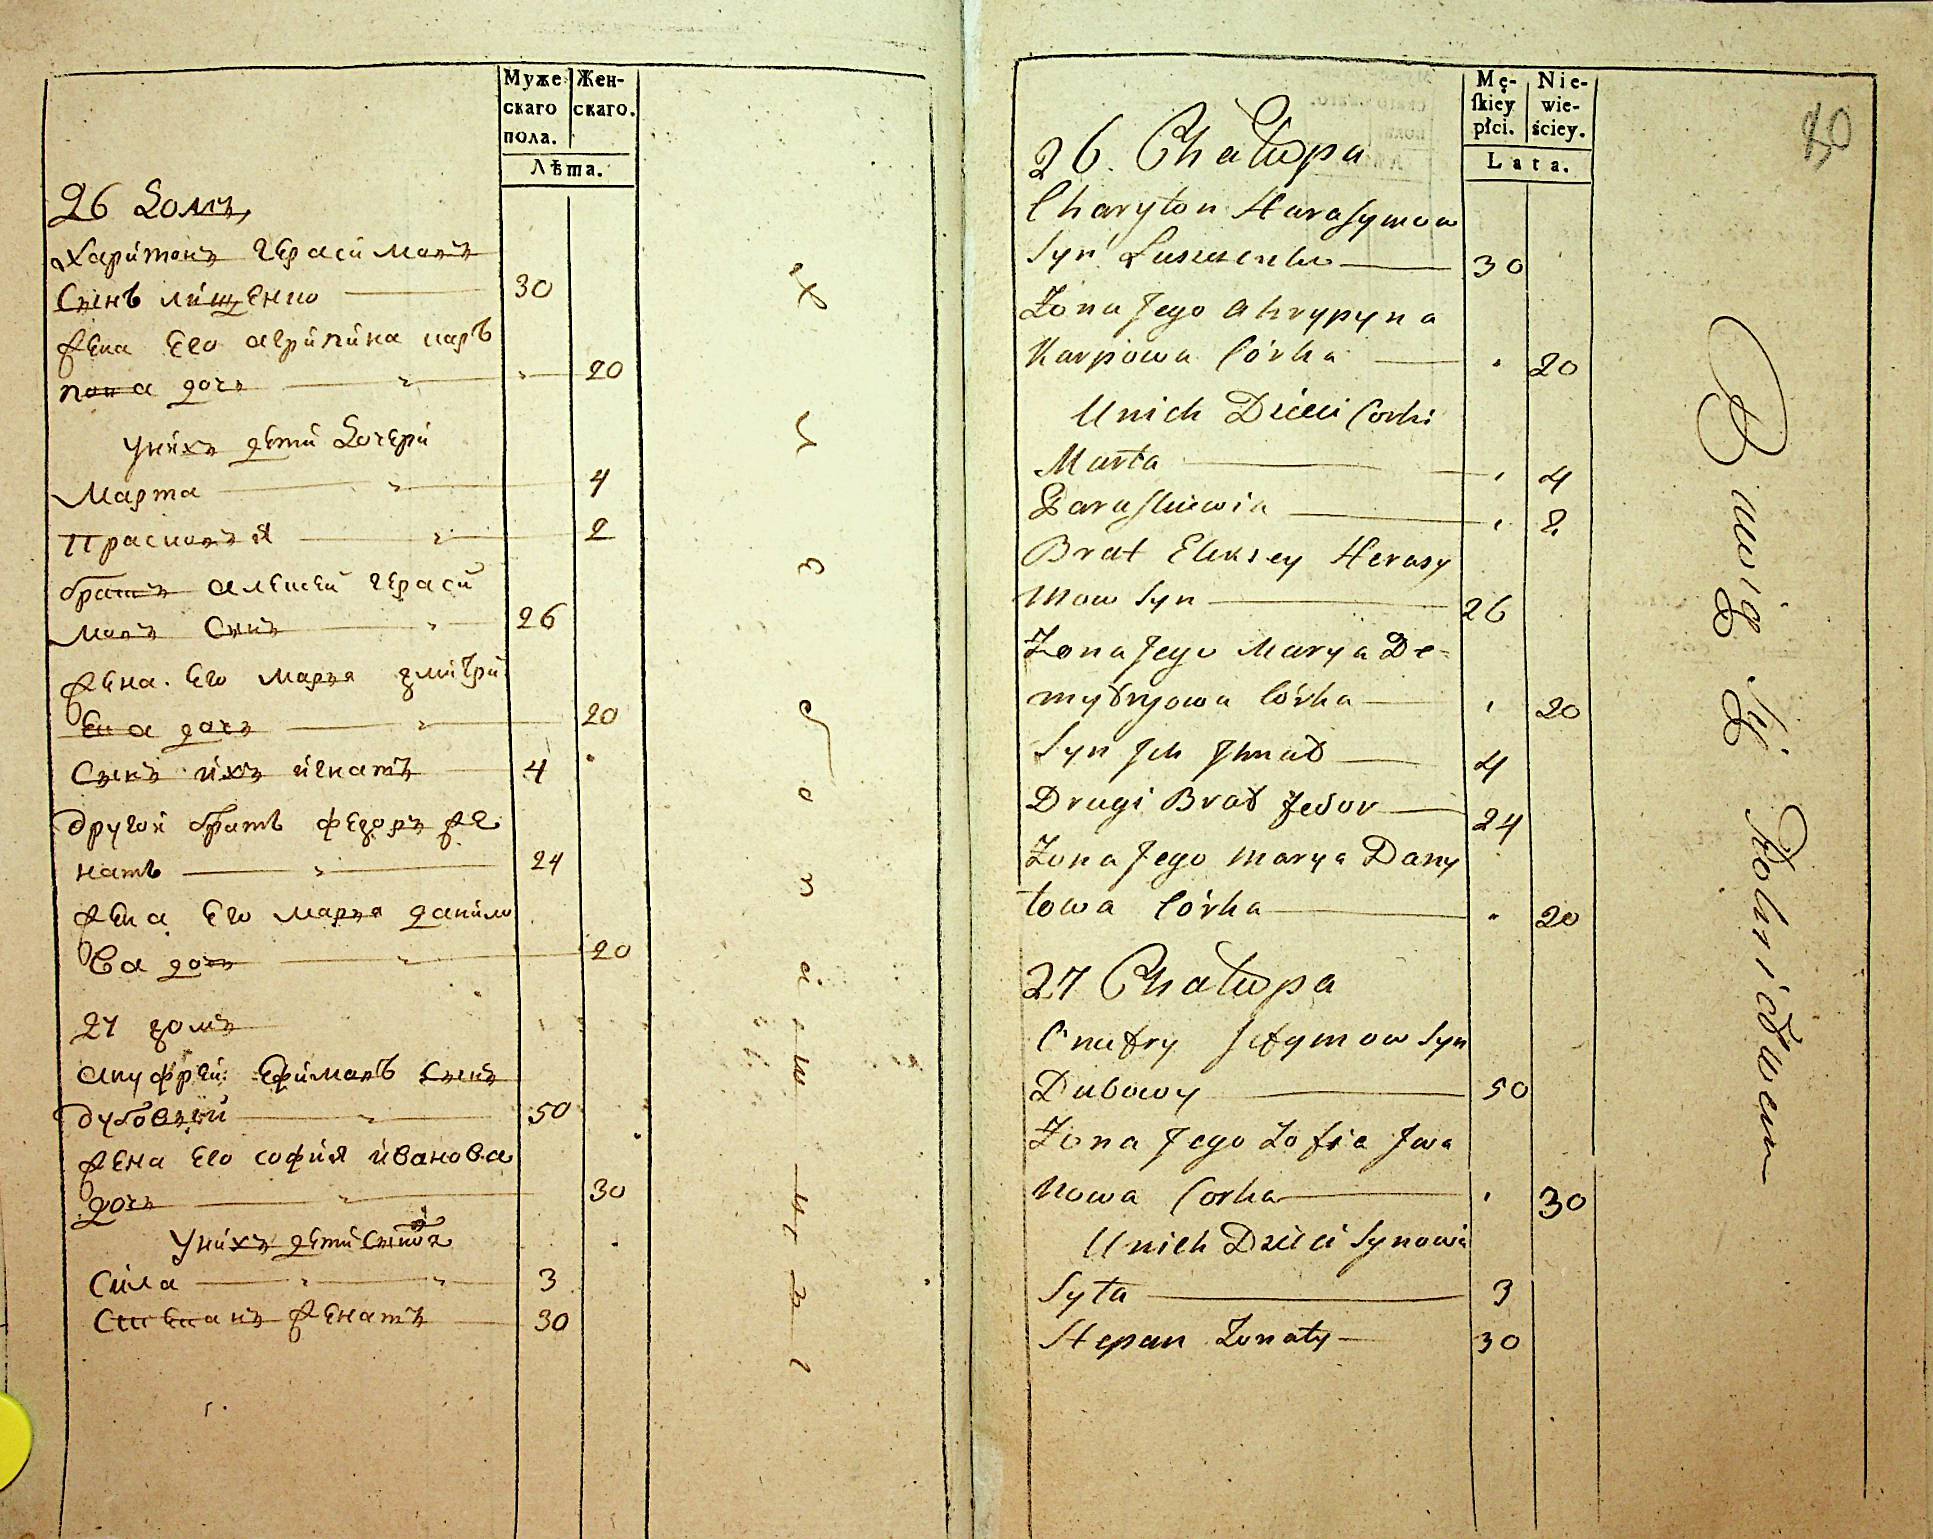 Муже
скаго
пола.
Жен-
скаго.
Лѣта.
26 Домъ
Харитонъ Герасимовъ
Сынъ лищенко 30
жена Его агрипина кар
пова дочь 20
У нихъ дѣти Дочери
Марта 4
Прасковѣя 2
братъ алексей Гераси
мовъ Сынъ 26
жена Его марѣя дмитри
ева дочь 20
Сынъ ихъ игнатъ 4
другой братъ федоръ же
натъ 24
жена Его марѣя данило
ва дочь 20
27 домъ
ануфрѣй Ефимовъ Сынъ
дубовый 50
жена Его софия иванова
дочь 30
У нихъ дѣти Сыновя
Сила 3
Степанъ женатъ 30
хлѣбопашцы
Mę-
skiey
płci.
Nie-
wie-
ściey.
Lata.
80
26. Chałupa
Charyton Harasymow
Syn 30
Żona Jego Ahrypyna
Karpowa Córka 20
U nich Dzieci Corki
Marta 4
Paraskiewia 2
Brat Eleksey Herasy
mow Syn 26
Żona Jego Marya De-
mytryowa Córka 20
Syn Ich Ihnat 4
Drugi Brat Fedor 24
Żona Jego Marya Dany
łowa Córka 20
27 Chałupa
Onufry Jefymow Syn
Dubowy 50
Żona Jego Zofia Iwa
nowa Corka 30
U nich Dzieci Synowie
Syła 3
Stepan Żonaty 30
Bawią się Rolnictwem